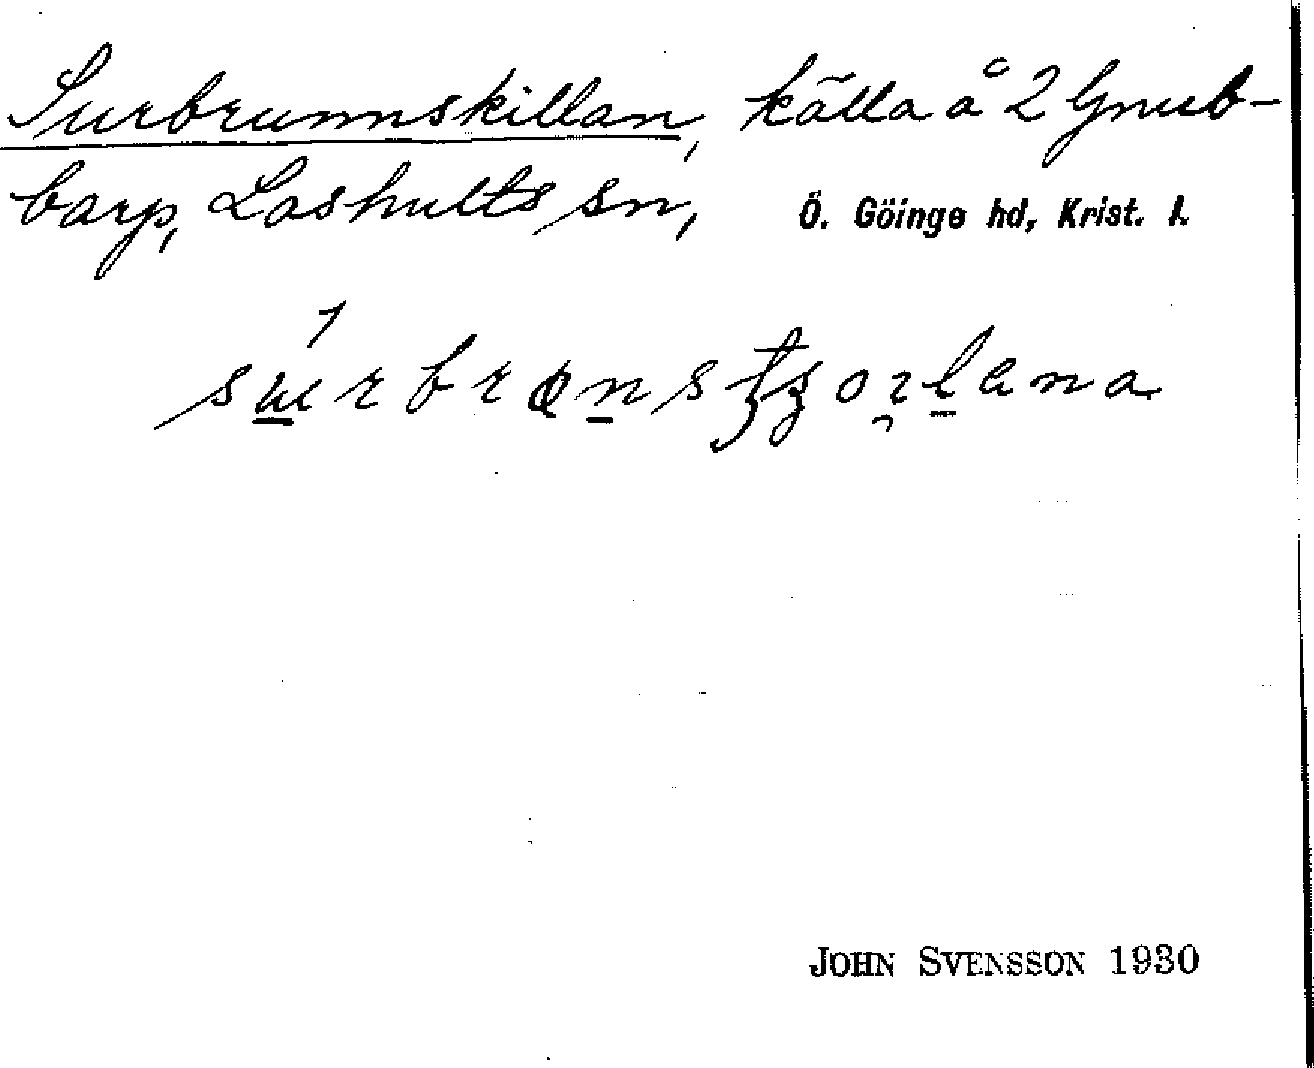 Surbrunnskillan, källa å 2 Gnub-
barp, Loshults sn, Ö. Göinge hd, Krist. l.
JOHN SVENSSON 1930